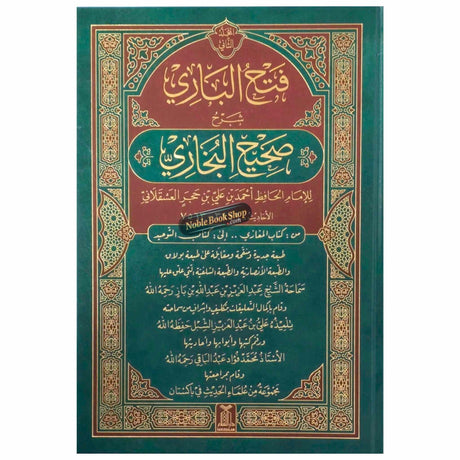 المجلد
الثاني
فتح الباري
بشرح
صحيح البخاري
للإمام الحافظ أحمد بن علي بن حجر العسقلاني
الأحاديث
NobleBookShop.com
من: كتاب المغازي .. إلى: كتاب التوحيد
طبعة جديدة ومنقحة ومقابلة على طبعة بولاق
والطبعة الأنصارية والطبعة السلفية التي علق عليها
سماحة الشيخ عبد العزيز بن عبد الله بن باز رحمه الله
وقام بإكمال التعليقات بتكليف وإشراف من سماحته
تلميذه علي بن عبد العزيز الشبل حفظه الله
ورقم كتبها وأبوابها وأحاديثها
الأستاذ محمد فؤاد عبد الباقي رحمه الله
وقام بمراجعتها
مجموعة من علماء الحديث في باكستان
DARUSSALAM